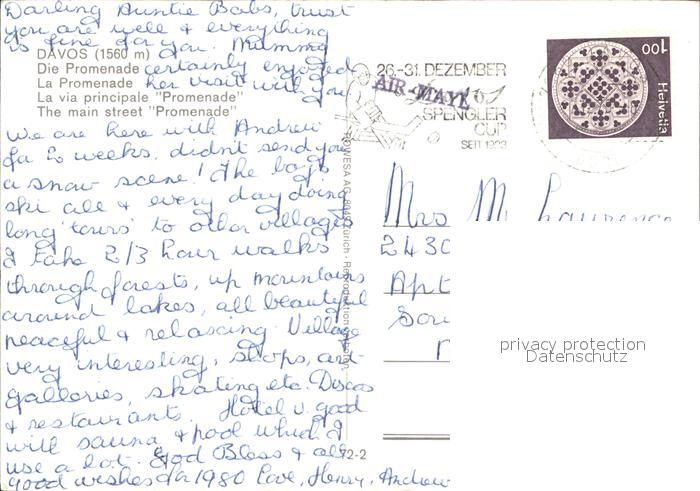 Darling Auntie Babs, trust
you are well & everything
is fine for you. Mummy
certainly enjoyed
her visit with you
We are here with Andrew
for 2 weeks. didn't send you
a snow scene! The boys
ski all & every day doing
long 'tours' to other villages
I take 2/3 hour walks
through forests, up mountains
around lakes, all beautiful
peaceful & relaxing. Village
very interesting, shops, art
galleries, skating etc. Discos
& restaurants. Hotel v. good
with sauna & pool which I
use a lot. God Bless & all
good wishes for 1980 Love, Henry, Andrew
DAVOS (1560 m)
Die Promenade
La Promenade
La via principale "Promenade"
The main street "Promenade"
26.-31. DEZEMBER
SPENGLER
CUP
SEIT 1923
AIR MAYL
100
Helvetia
Zürich - Reproduction
72-2
Mrs M. Laurence
2430
Apt
privacy protection
Datenschutz